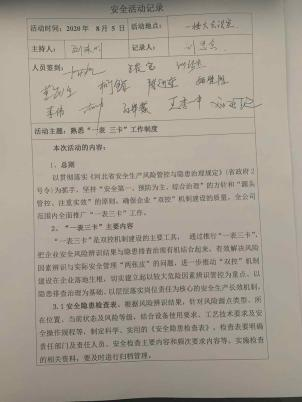 安全活动记录
活动时间：2020 年 8 月 5 日 活动地点： 一楼大会议室
主持人： 记录人：
人员签到：
李伟
活动主题：熟悉“一表 三卡”工作制度
本次活动的内容：
1、总则
以贯彻落实《河北省安全生产风险管控与隐患治理规定》（省政府 2
号令）为抓手，坚持“安全第一、预防为主、综合治理”的方针和“源头
管控、注重实效”的原则，确保企业“双控”机制建设的质量，在全公司
范围内全面推广“一表三卡”工作。
2、“一表三卡”主要内容
“一表三卡”是双控机制建设的主要工具，通过推行“一表三卡”，
把企业安全风险辨识结果与隐患排查治理有机结合起来，有效解决风险
因素辨识与实际安全管理“两张皮”的问题，进一步推动“双控”机制
建设在企业落地生根，切实建立起以较大危险因素辨识管控为重点、以
隐患排查治理为基础、以层层落实岗位责任为核心的安全生产长效机制。
3.1 安全隐患检查表。根据风险辨识结果，针对风险源点类型、所
在位置、当前状态及风险等级，结合设备使用要求、工艺技术要求及安
全操作规程等，制定科学、实用的《安全隐患检查表》，检查表要明确
责任部门及责任人员、安全检查主要内容和频次要求内容等，实施检查
的相关资料，要及时进行归档管理。